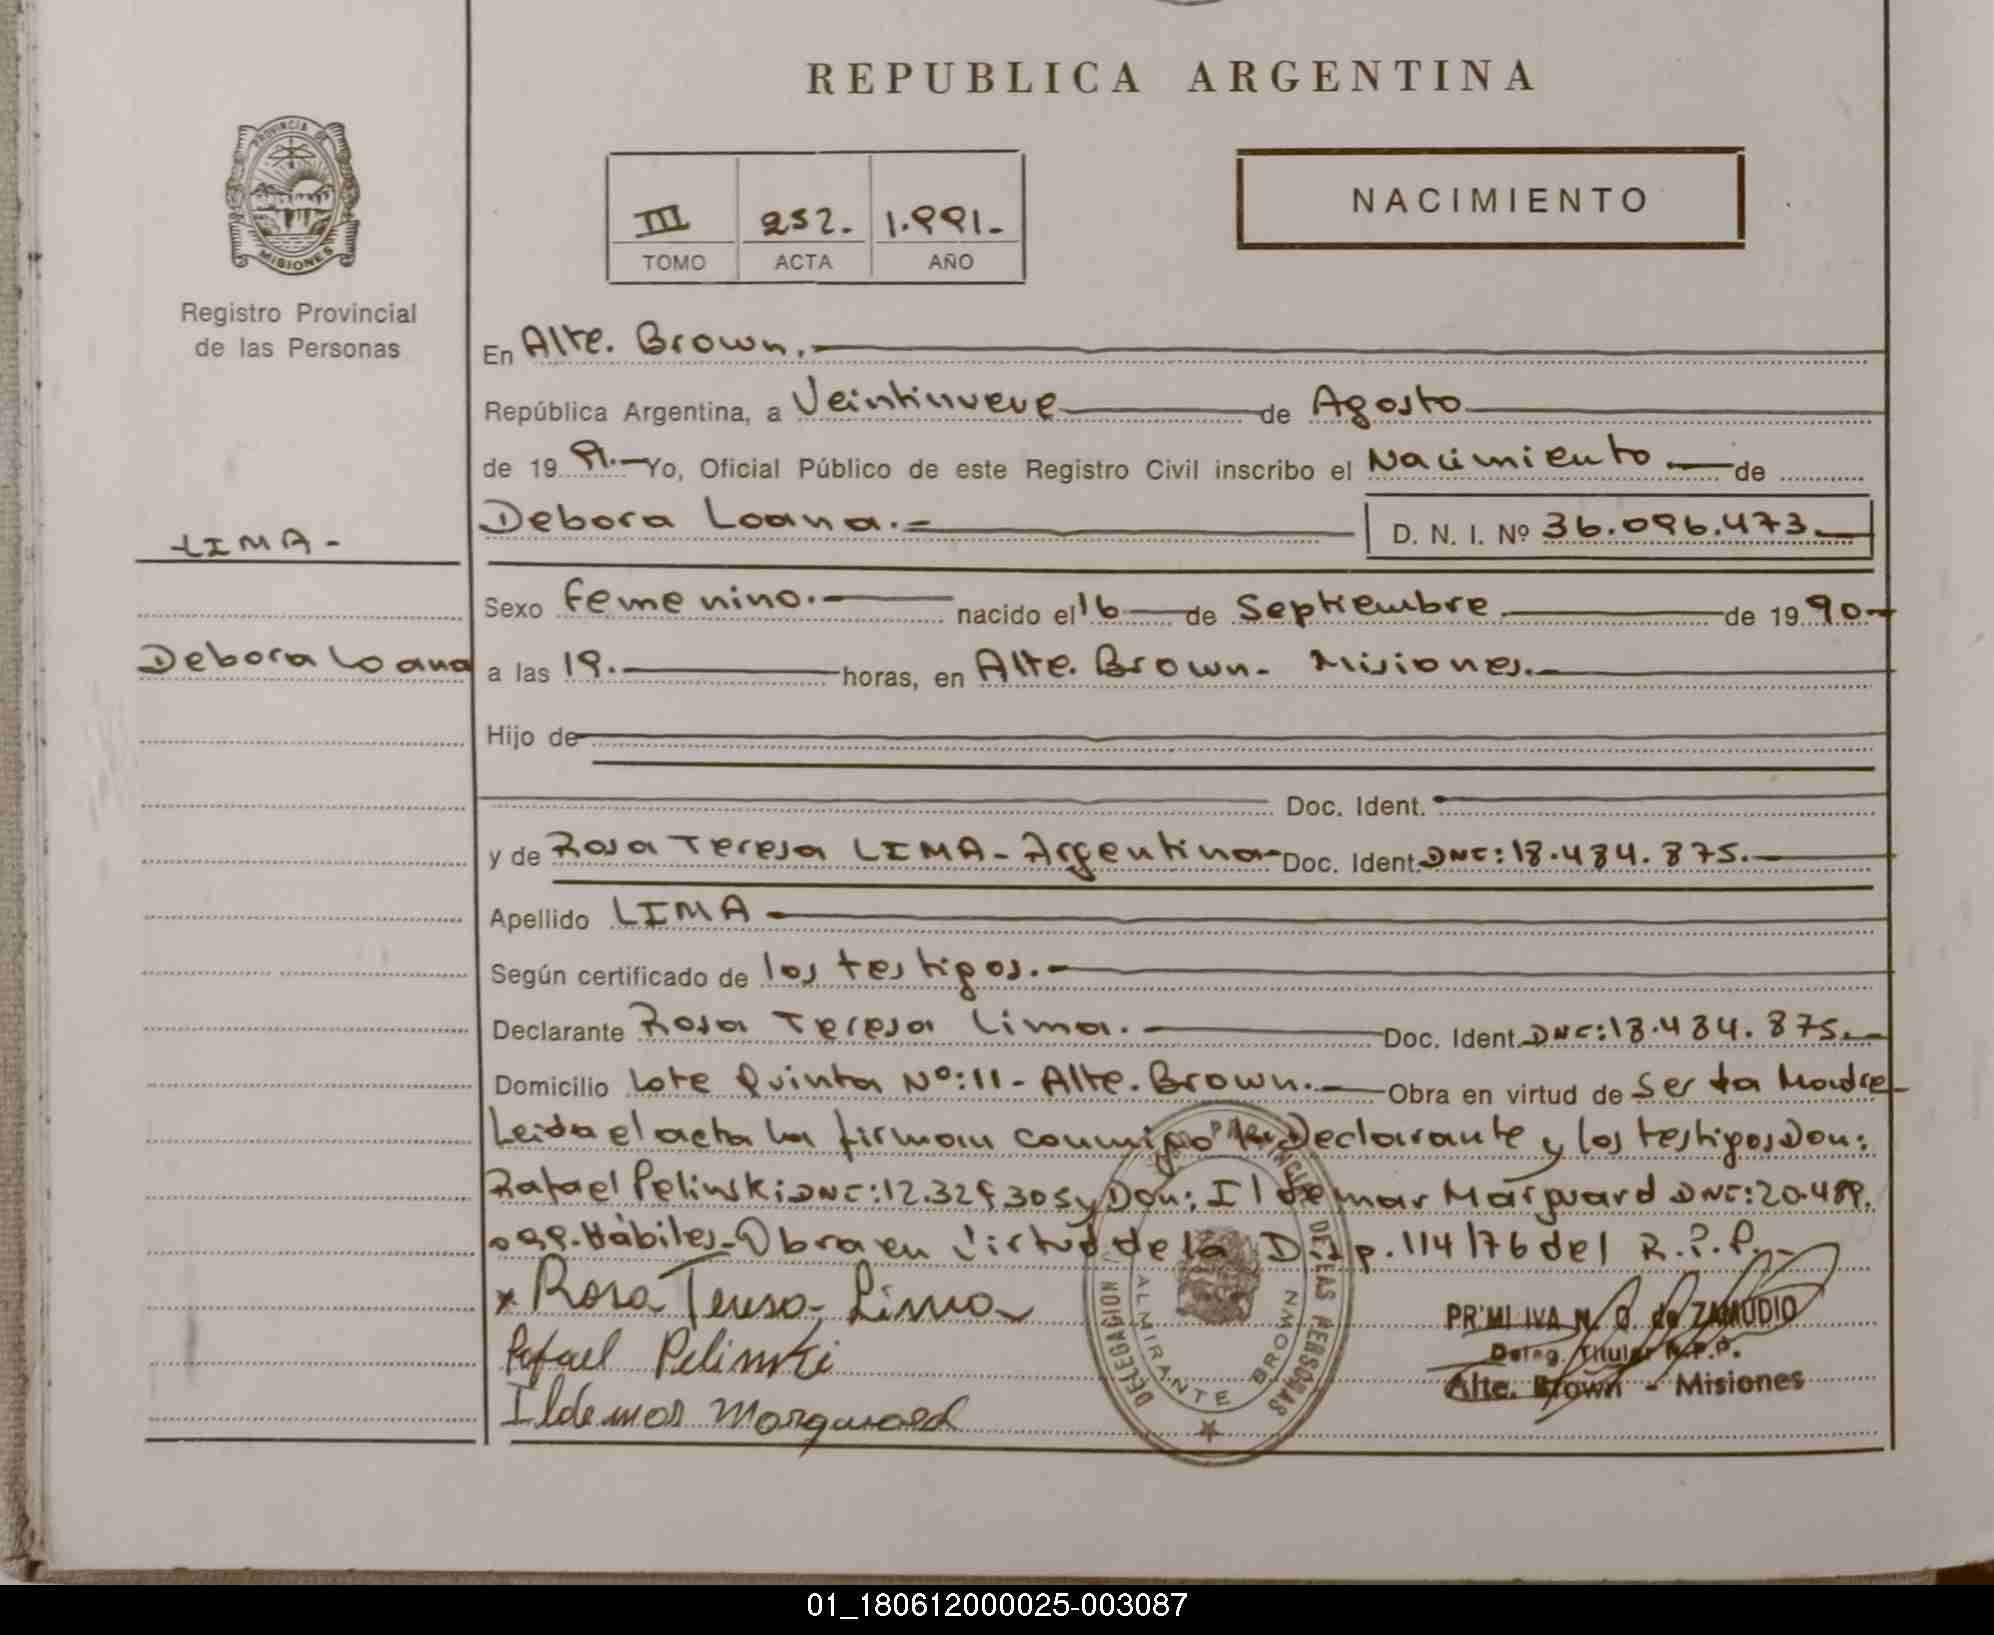 REPUBLICA ARGENTINA
PROVINCIA DE
MISIONES
Registro Provincial
de las Personas
III 252. 1.991.-
TOMO ACTA AÑO
NACIMIENTO
En Alte. Brown.
República Argentina, a Veintinueve de Agosto
de 19 91.- Yo, Oficial Público de este Registro Civil inscribo el Nacimiento de
LIMA-
Debora Loana.- D. N. I. Nº 36.096.473.
Sexo femenino.- nacido el 16 de Septiembre de 19 90-
Debora Loana
a las 19. horas, en Alte. Brown- Misiones.
Hijo de
Doc. Ident.
y de Rosa Teresa LIMA- Argentina- Doc. Ident. DNI:18.484.875.
Apellido LIMA
Según certificado de los testigos.
Declarante Rosa Teresa Lima. Doc. Ident. DNI:18.484.875.
Domicilio Lote Quinta Nº:11- Alte. Brown. Obra en virtud de Ser la Madre
Leida el acta la firman conmigo la Declarante y los testigos Don:
Rafael Pelinski DNI:12.329305 y Don: Ildemar Marquard DNI:20.489.
099. Hábiles- Obra en Virtud de la Disp. 114/76 del R.P.P.-
x Rosa Teresa Lima
Rafael Pelinski
Ildemar Marquard
DELEGACION
PROVINCIAL DE LAS PERSONAS
ALMIRANTE BROWN
PRIMITIVA N. O. de ZAMUDIO
Deleg. Titular R.P.P.
Alte. Brown - Misiones
01_180612000025-003087